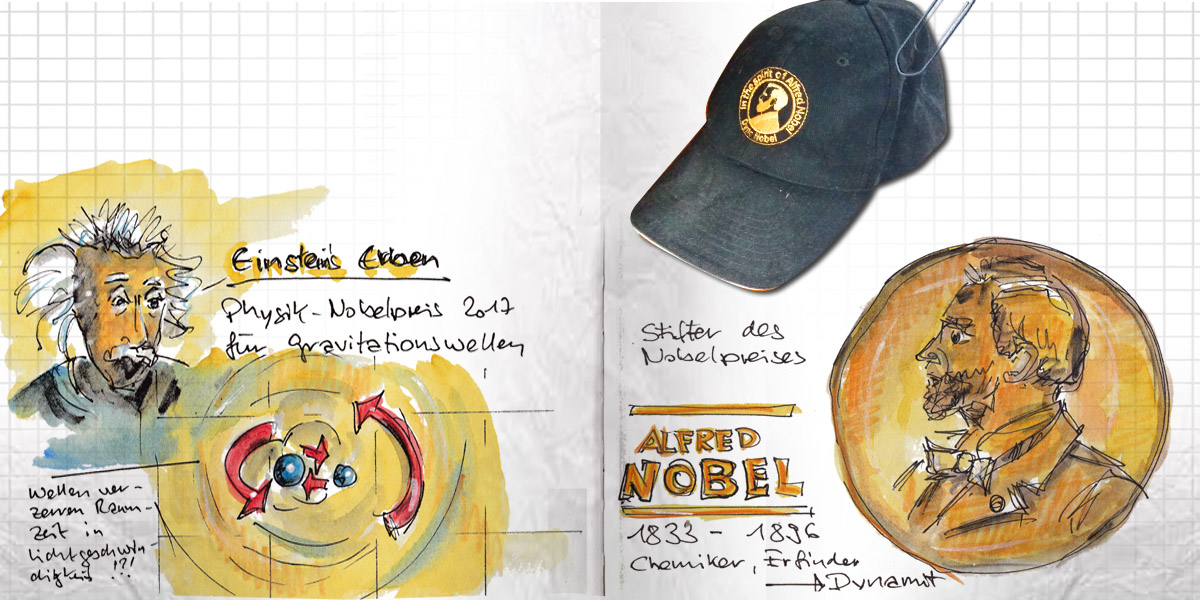 Einstein's Erben
Physik-Nobelpreis 2017
für Gravitationswellen
Wellen ver-
zerren Raum-
Zeit in
Lichtgeschwin-
digkeit !?!
In the spirit of Alfred Nobel
Dyno Nobel
Stifter des
Nobelpreises
ALFRED
NOBEL
1833 - 1896
Chemiker, Erfinder
→ Dynamit